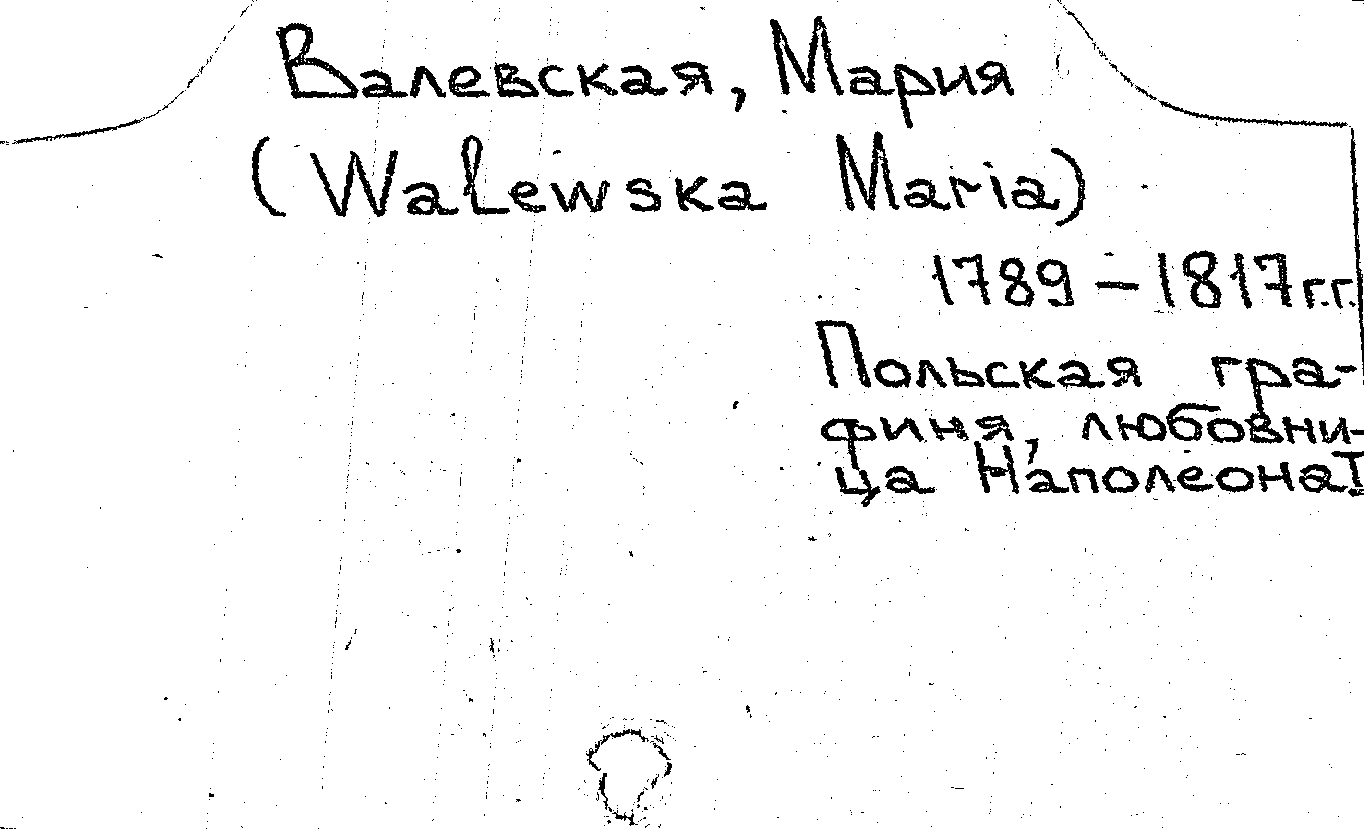 Валевская, Мария
(Walewska Maria)
1789 – 1817 г.г.
Польская гра-
финя, любовни-
ца Наполеона I